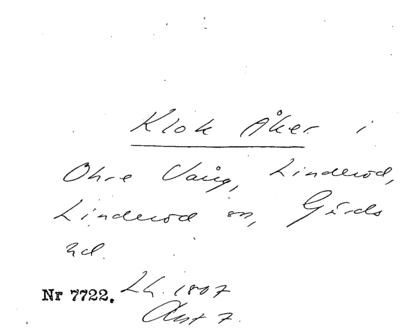 Klok Åker i
Ohre Vång, Linderod,
Linderod sn, Gärds
hd.
Nr 7722. LH. 1807
Akt 7.